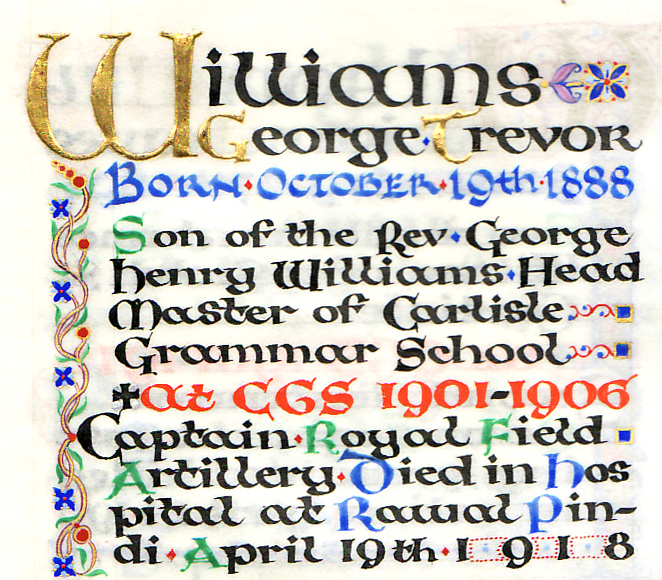 Williams
George·Trevor
Born·October·19th·1888
Son of the Rev·George
Henry Williams·Head
Master of Carlisle
Grammar School
✝At CGS 1901-1906
Captain·Royal Field
Artillery·Died in Hos
pital at Rawal Pin-
di·April 19th·1918